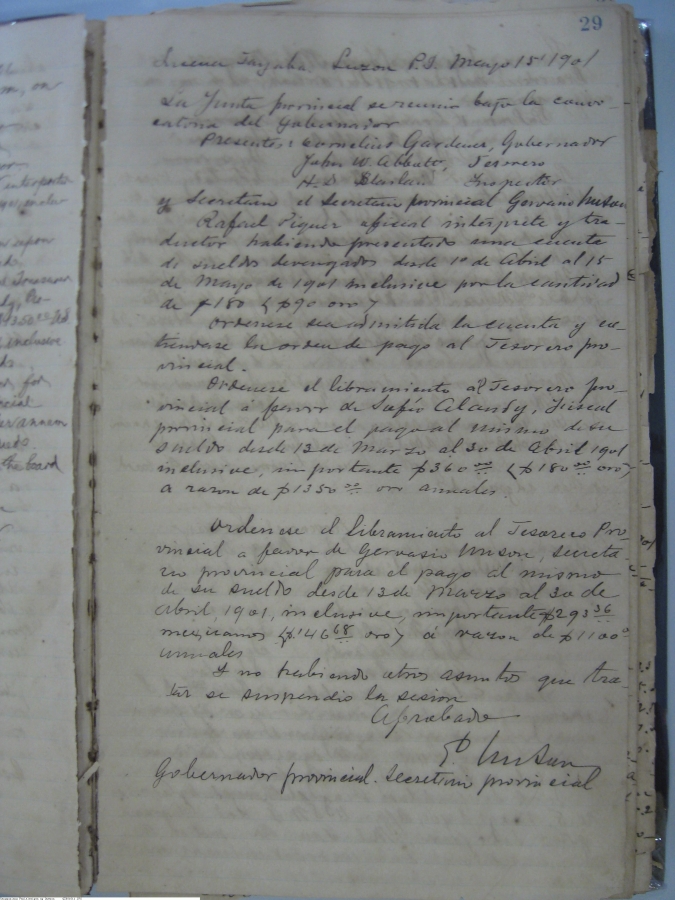 29
Lucena Tayabas Luzon P.I. Mayo 15 1901
La Junta provincial se reunio bajo la convo-
catoria del Gobernador
Presentes: Cornelius Gardener, Gobernador
John W. Abbott, Tesorero
H. D. Inspector
y Secretario el Secretario provincial Gervasio Unson
Rafael Piquer oficial interprete y tra-
ductor habiendo presentado una cuenta
de sueldos devengados desde 1º de Abril al 15
de Mayo de 1901 inclusive por la cantidad
de $180 ($90 oro)
Ordenese sea admitida la cuenta y es-
tiendase la orden de pago al Tesorero pro-
vincial.
Ordenese el libramiento al Tesorero pro-
vincial á favor de Sofio Alandy, Fiscal
provincial para el pago al mismo de su
sueldo desde 12 de Marzo al 30 de Abril 1901
inclusive, importante $360 00 ($180 00 oro)
a razon de $1350 00 oro anuales
Ordenese el libramiento al Tesorero Pro-
vincial a favor de Gervasio Unson, secreta-
rio provincial para el pago al mismo
de su sueldo desde 12 de Marzo al 30 de
Abril, 1901, inclusive, importante $293 36
mexicanos ($146 68 oro) á razon de $1100
anuales
Y no habiendo otros asuntos que tra-
tar se suspendio la sesion
Aprobado
G. Unson
Gobernador provincial. Secretario provincial
interpreter
Tesorero
inclusive
for
per annum
the board